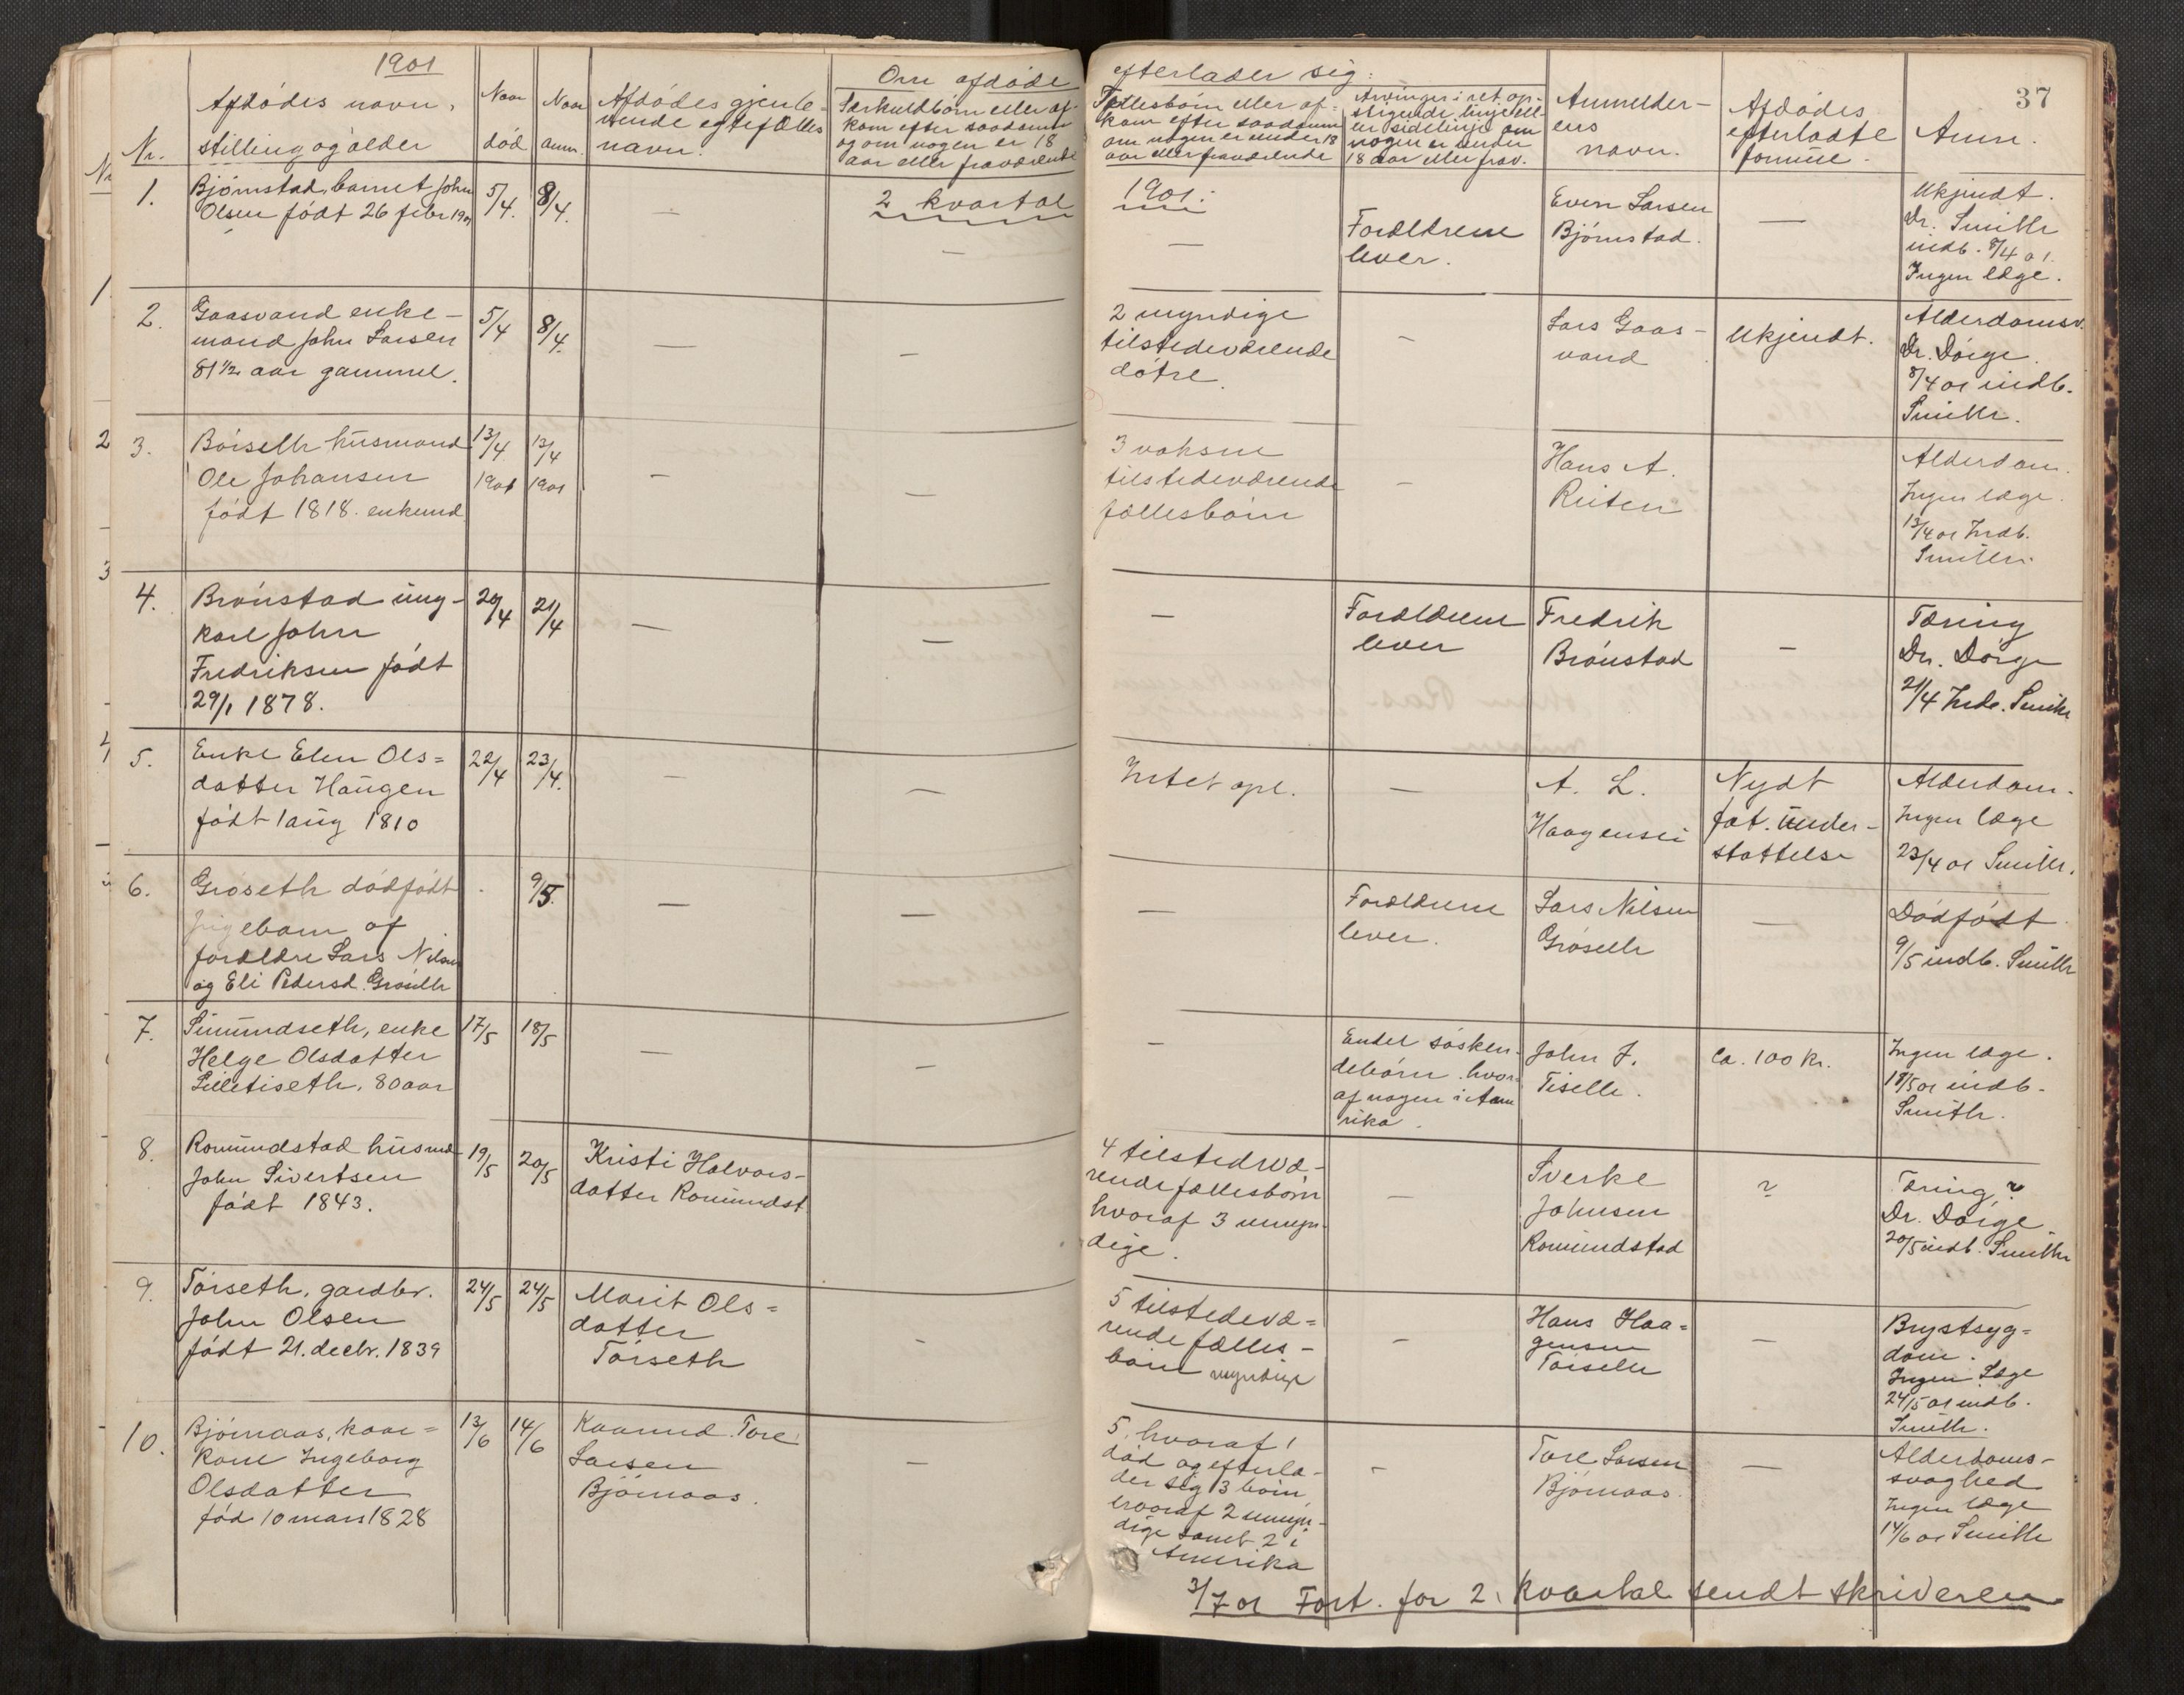 1901
37
Nr.
Afdødes navn,
stilling og alder
Naar
død
Naar
anm.
Afdødes gjenle-
vende egtefælles
navn.
Om afdøde
Særkuldbørn eller af-
kom efter saadanne
og om nogen er 18
aar eller fraværende
efterlader sig:
Fællesbørn eller af-
kom efter saadanne
om nogen er under 18
aar eller fraværende
Arvinger i ret op-
stigende linje ell-
er sidelinje om
nogen er under
18 aar eller frav.
Anmelder-
ens
navn.
Afdødes
efterladte
formue.
Anm.
2 kvartal
1901.
1.
Bjørnstad, barnet John
Olsen født 26 febr 1901
5/4.
8/4.
—
—
—
Forældrene
lever.
Even Larsen
Bjørnstad.
—
Ukjendt.
Dr. Smith
indb. 8/4 01.
Ingen læge.
2.
Gaasvand enke-
mand John Larsen
81 1/2 aar gammel.
5/4
8/4.
—
—
2 myndige
tilstedeværende
døtre.
-
Lars Gaas-
vand
Ukjendt.
Alderdomsv.
Dr. Dørge.
8/4 01 indb.
Smith.
3.
Bøiseth husmand
Ole Johansen
født 1818. enkemd
13/4
1901
13/4
1901
—
—
3 voksne
tilstedeværende
fællesbørn
-
Hans A.
Reiten
Alderdom.
Ingen læge.
13/4 01 Indb.
Smith.
4.
Brønstad ung-
karl John
Fredriksen født
29/1 1878.
20/4
21/4
—
—
—
Forældrene
lever
Fredrik
Brønstad
—
Tæring
Dr. Dørge
21/4 Indb. Smith
5.
Enke Elen Ols=
datter Haugen
født 1 aug 1810
22/4
23/4.
—
—
Intet opl.
—
A. L.
Haagensen
Nydt
fat. under-
støttelse
Alderdom.
Ingen læge
23/4 01 Smith.
6.
Grøseth dødfødt
pigebarn af
forældre Lars Nilsen
og Eli Pedersd. Grøseth
9/5.
—
—
—
Forældrene
lever.
Lars Nilsen
Grøseth
—
Dødfødt
9/5 indb. Smith
7.
Simundseth, enke
Helge Olsdatter
Lilletiseth, 80 aar
17/5
18/5
—
—
-
Endel søsken-
debørn. hvor-
af nogen i Ame
rika.
John J.
Tiseth.
Ca. 100 Kr.
Ingen læge.
18/5 01 indb.
Smith.
8.
Romundstad husmd
John Sivertsen
født 1843.
19/5
20/5
Kristi Halvors-
datter Romundst
4 tilstedevæ-
rende fællesbørn
hvoraf 3 umyn-
dige.
—
Sverke
Johnsen
Romundstad
?
Tæring?
Dr. Dørge.
20/5 indb. Smith
9.
Tørseth, gardbr.
John Olsen
født 21. decbr. 1839
24/5
24/5
Marit Ols=
datter
Tørseth
-
5 tilstedevæ=
rende fælles-
børn myndige
-
Hans Haa=
gensen
Tørseth
—
Brystsyg=
dom.
Ingen Læge
24/5 01 indb.
Smith.
10.
Bjørnaas, kaar=
kone Ingeborg
Olsdatter
fød 10 mars 1828
13/6
14/6
Kaarmd. Tore
Larsen
Bjørnaas.
—
5, hvoraf 1
død og efterla-
der sig 3 børn,
hvoraf 2 umyn-
dige samt 2 i
Amerika
-
Tore Larsen
Bjørnaas.
—
Alderdoms-
svaghed
Ingen læge
14/6 01 Smith
3/7 01 Fort. for 2. kvartal sendt skriveren